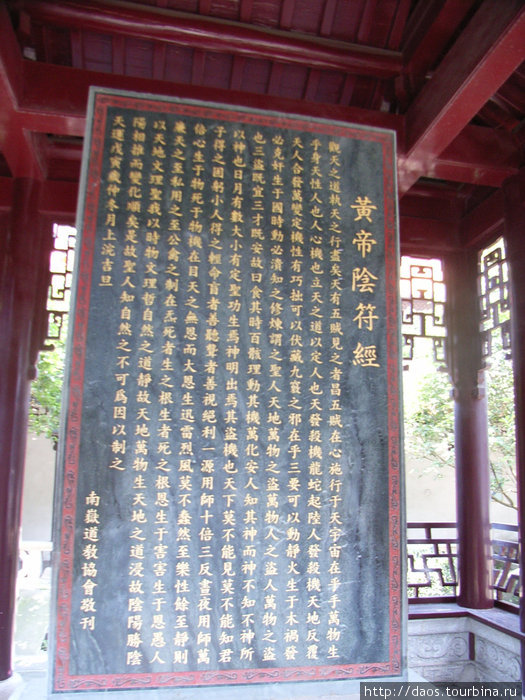 黃帝陰符經
觀天之道執天之行盡矣天有五賊見之者昌五賊在心施行于天宇宙在乎手萬物生
乎身天性人也人心機也立天之道以定人也天發殺機龍蛇起陸人發殺機天地反覆
天人合發萬變定機性有巧拙可以伏藏九竅之邪在乎三要可以動靜火生于木禍發
必克奸生于國時動必潰知之修煉謂之聖人天地萬物之盜萬物人之盜人萬物之盜
也三盜既宜三才既安故曰食其時百骸理動其機萬化安人知其神而神不知不神所
以神也日月有數大小有定聖功生焉神明出焉其盜機也天下莫不能見莫不能知君
子得之困躬小人得之輕命盲者善聽聾者善視絕利一源用師十倍三反晝夜用師萬
倍心生于物死于物機在目天之無恩而大恩生迅雷烈風莫不蠢然至樂性餘至靜則
廉天之至私用之至公禽之制在炁死者生之根生者死之根恩生于害害生于恩愚人
以天地文理聖我以時物文理哲自然之道靜故天地萬物生天地之道浸故陰陽勝陰
陽相推而變化順矣是故聖人知自然之不可爲因以制之
天運戊寅歲仲冬月上浣吉旦
南嶽道教協會敬刊
http://daos.tourbina.ru/